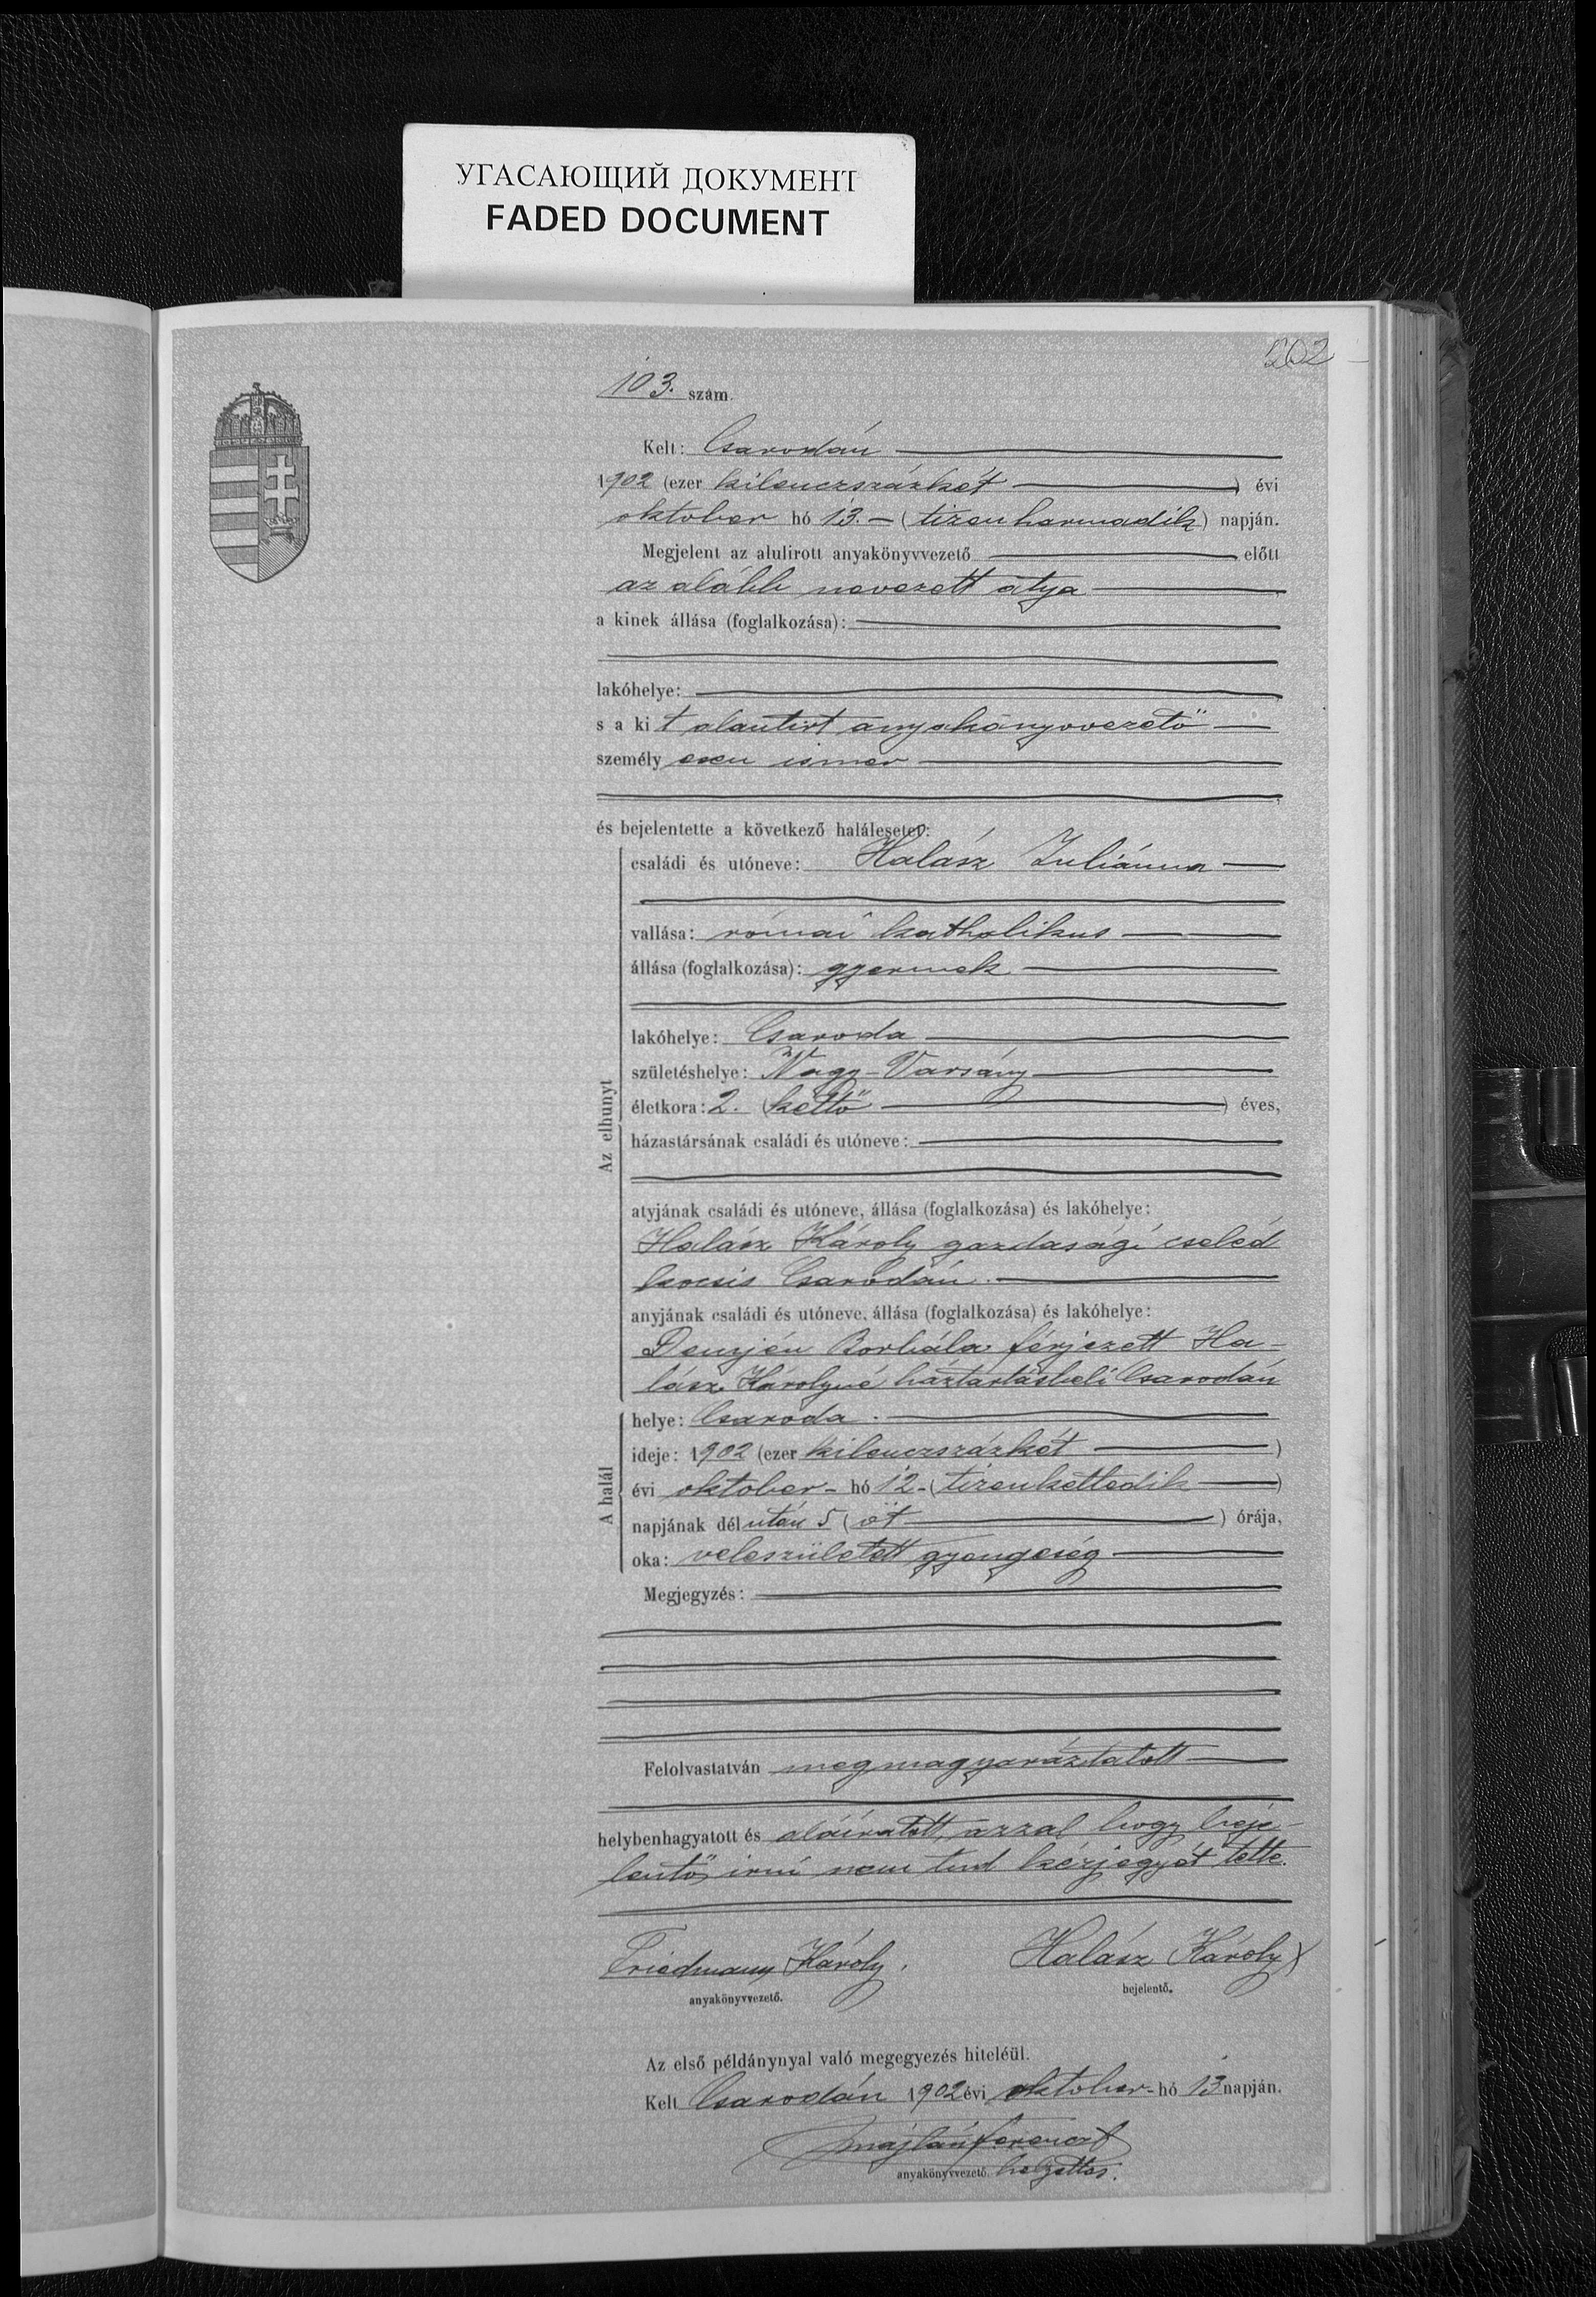 УГАСАЮЩИЙ ДОКУМЕНТ
FADED DOCUMENT
202
103. szám.
Kelt: Csarodán
1902 (ezer kilenczszázkét) évi
oktober hó 13. - (tizenharmadik) napján.
Megjelent az alulirott anyakönyvvezető előtt
az alább nevezett atya
a kinek állása (foglalkozása):
lakóhelye:
s a kit alantirt anyakönyvvezető
személyesen ismer
és bejelentette a következő halálesetet:
Az elhunyt
családi és utóneve: Halász Juliánna
vallása: római katholikus
állása (foglalkozása): gyermek
lakóhelye: Csaroda
születéshelye: Nagy-Varsány
életkora: 2. (kettő) éves,
házastársának családi és utóneve:
atyjának családi és utóneve, állása (foglalkozása) és lakóhelye:
Halász Károly gazdasági cseléd
kocsis Csarodán.
anyjának családi és utóneve, állása (foglalkozása) és lakóhelye:
Demjén Borbála férjezett Ha-
lász Károlyné háztartásbeli Csarodán
A halál
helye: Csaroda.
ideje: 1902 (ezer kilenczszázkét)
évi oktober - hó 12 - (tizenkettedik)
napjának délután 5 (öt) órája,
oka: veleszületett gyengeség
Megjegyzés:
Felolvastatván megmagyaráztatott
helybenhagyatott és aláiratott, azzal hogy beje-
lentő, irni nem tud kézjegyét tette.
Friedmann Károly.
Halász Károly X
anyakönyvvezető.
bejelentő.
Az első példánynyal való megegyezés hiteléül.
Kelt Csarodán 1902 évi oktober - hó 13 napján.
ferencz
anyakönyvvezető helyettes.